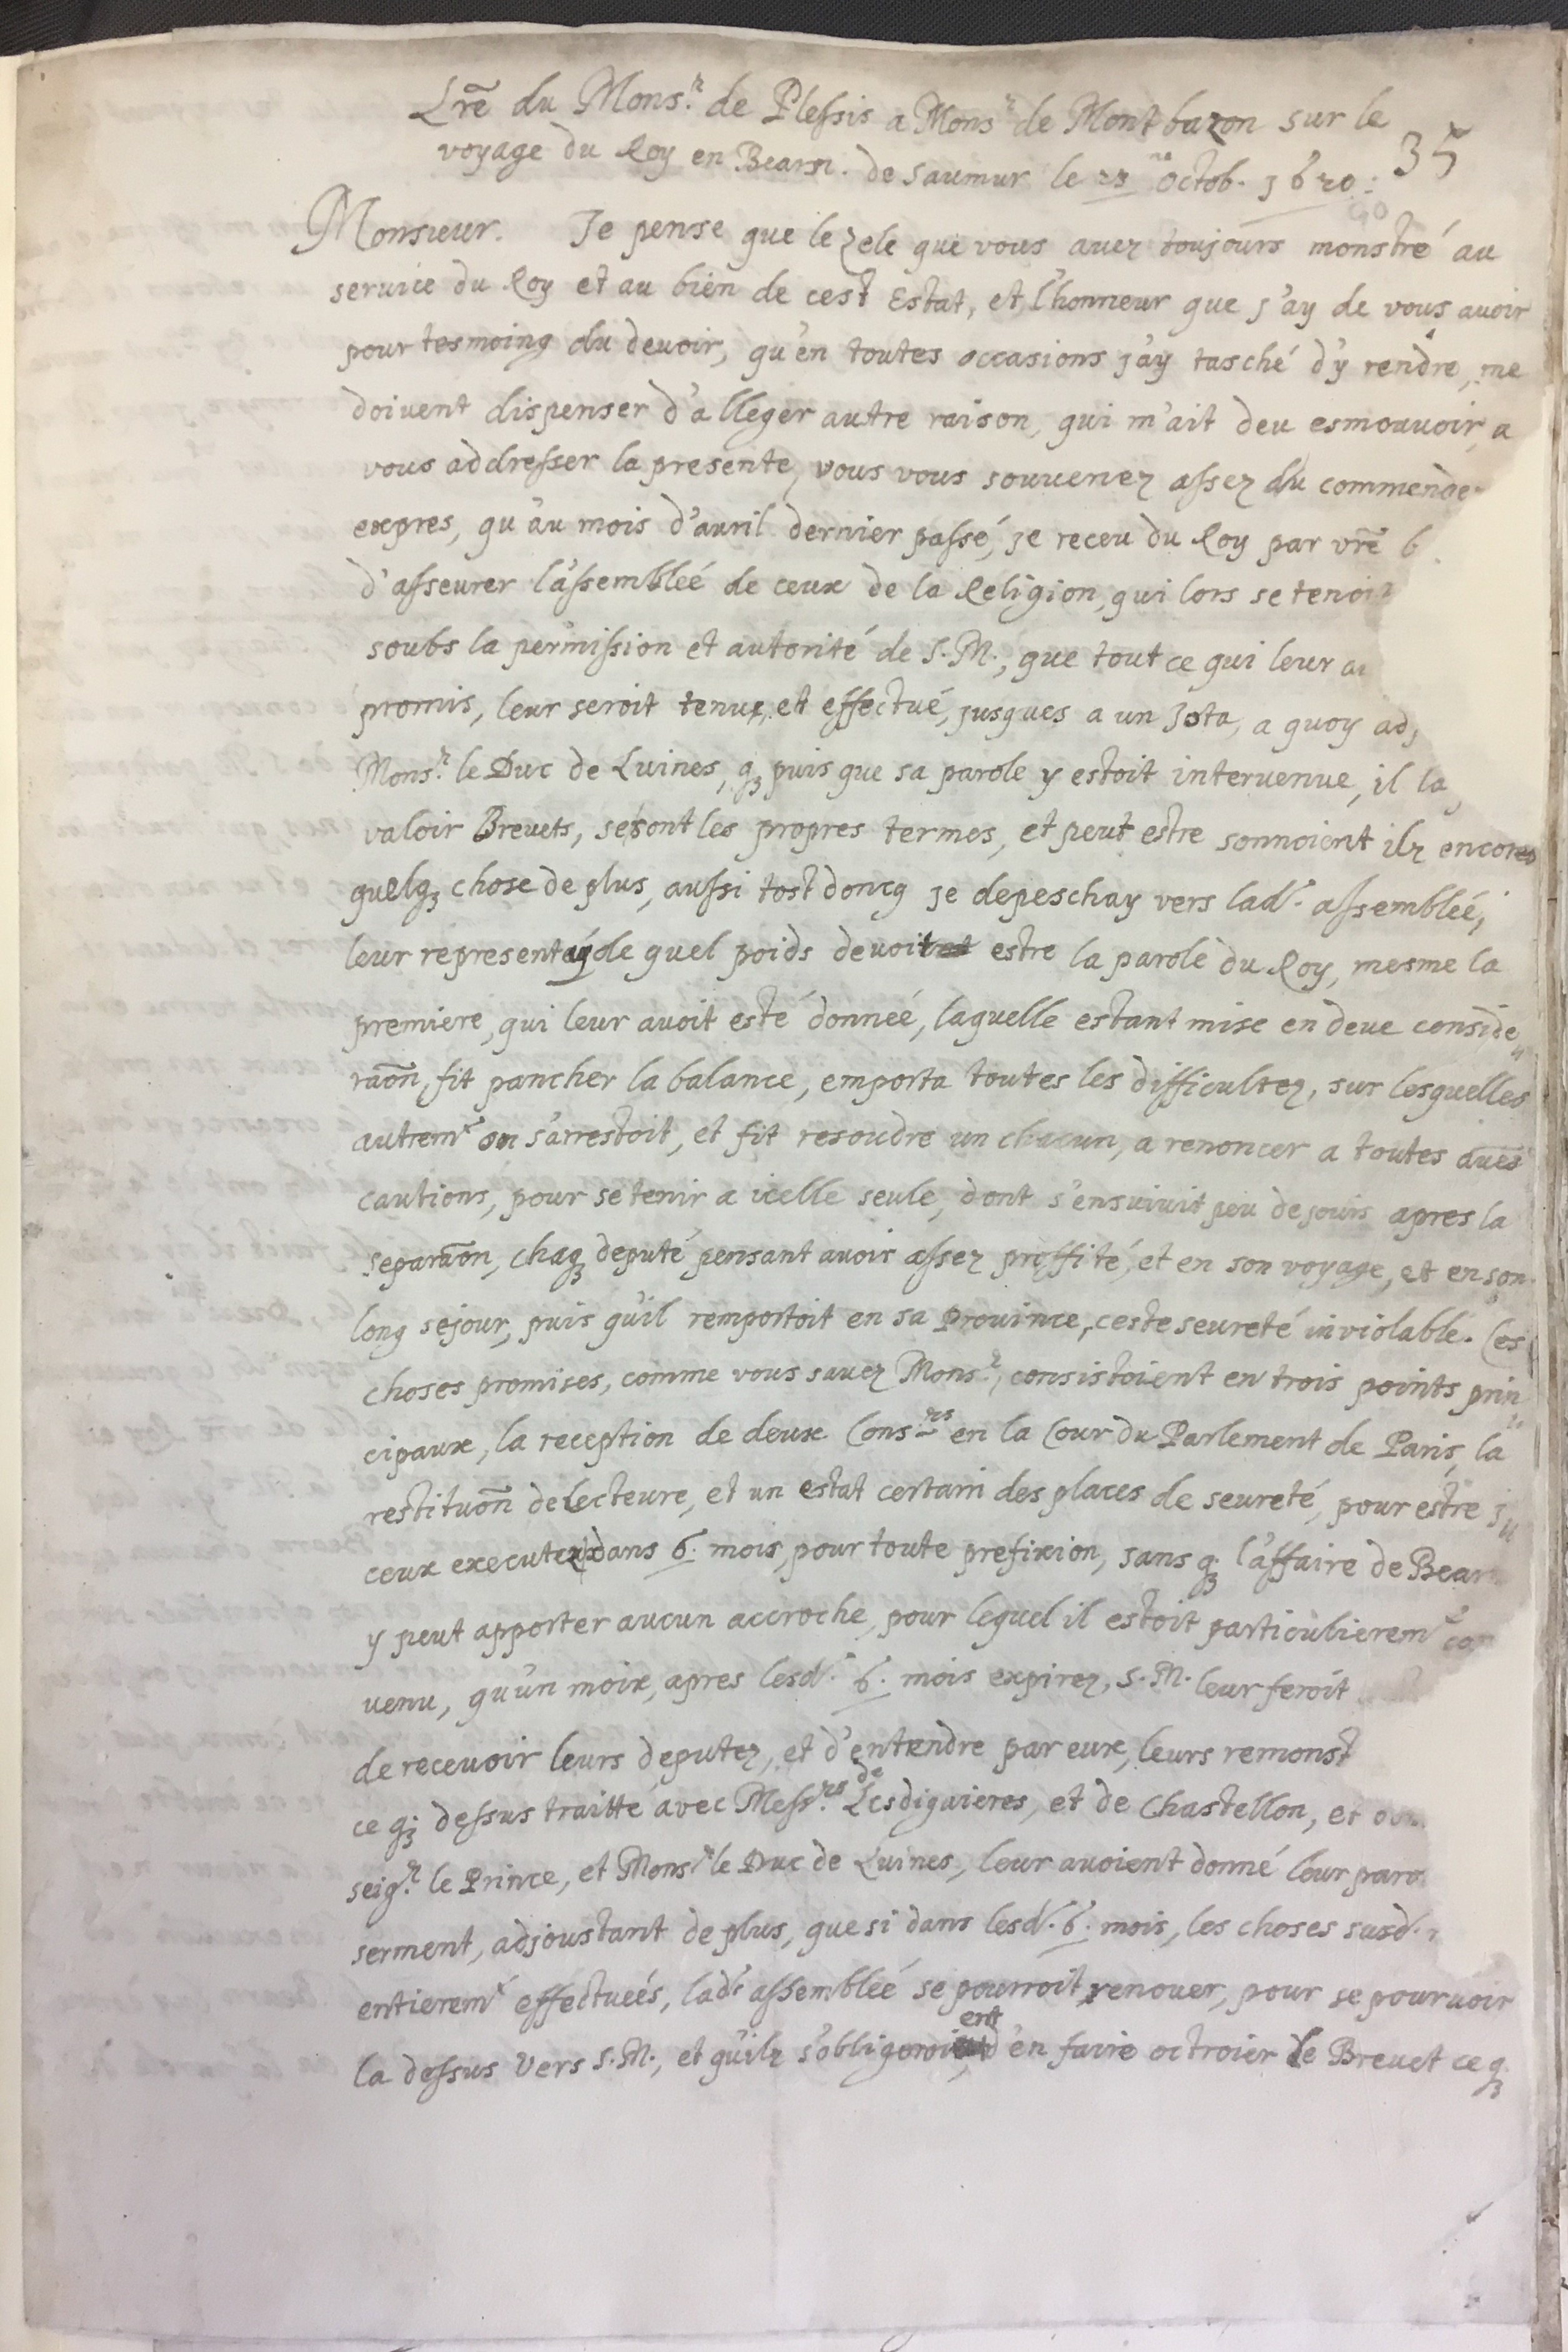 Lrẽ du Mons.r de Plessis a Monsr de Montbazon sur le
voyage du Roy en Bearn. de Saumur le 23 Octob. 1620.
35
Monsieur. Je pense que le zele que vous auez toujours monstré au
seruice du Roy et au bien de cest Estat, et l'honneur que j'ay de vous auoir
pour tesmoing du deuoir, qu'en toutes occasions j'ay tasché d'y rendre, me
doiuent dispenser d'alleger autre raison, qui m'ait deu esmouuoir a
vous addresser la presente, vous vous souuenez assez du commende
expres, qu'au mois d'auril dernier passé, je receu du Roy par vrẽ b
d'asseurer l'assembleé de ceux de la Religion, qui lors se tenoit
soubs la permission et autorité de S.M., que tout ce qui leur a
promis, leur seroit tenu, et effectué, jusques a un Jota, a quoy adj
Mons.r le Duc de Luines, q3 puis que sa parole y estoit interuenue, il la
valoir Breuets, se sont les propres termes, et peut estre sonnoient ilz encores
quelq3 chose de plus, aussi tost doncq je depeschay vers lad. assembleé,
leur representay de quel poids deuoit estre la parole du Roy, mesme la
premiere, qui leur auoit esté donneé, laquelle estant mise en deue conside
raõn, fit pancher la balance, emporta toutes les difficultez, sur lesquelles
autremt on s'arrestoit, et fit resoudre un chacun, a renoncer a toutes aũes
cautions, pour se tenir a icelle seule, dont s'ensuiuit peu de jours apres la
separaõn, chaq3 deputé pensant auoir assez proffité, et en son voyage, et en son
long sejour, puis qu'il remportoit en sa Prouince, ceste seureté inviolable. Ces
choses promises, comme vous sauez Mons.r, consistoient en trois points prin
cipaux, la reception de deux Cons.rs en la Cour du Parlement de Paris, la
restituõn de Lecteure, et un estat certain des places de seureté, pour estre j
ceux executez dans 6. mois, pour toute prefixion, sans q3 l'affaire de Bear
y peut apporter aucun accroche, pour lequel il estoit particulieremt con
uenu, qu'un moix, apres lesd. 6. mois expirez, S.M. leur feroit
de receuoir leurs deputez, et d'entendre par eux, leurs remonst
ce q3 dessus traitte avec Messrs. de Lesdiguieres, et de Chastellon, et
seig.r le Prince, et Monsr le Duc de Luines, leur auoient donné leur paro
serment, adjoustant de plus, que si dans lesd. 6. mois, les choses susd.
entieremt effectueés, lad. assembleé se pourroit renouer, pour se pouruoir
la dessus vers S.M., et qu'ilz s'obligeroient d'en faire octroier le Breuet ce q3